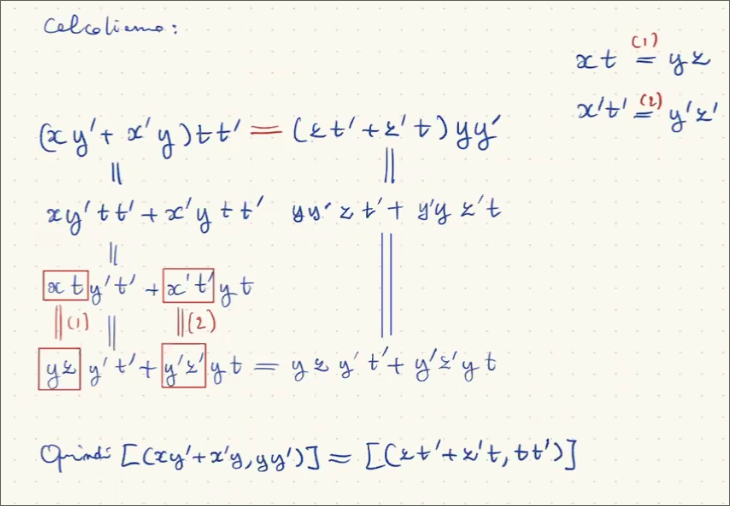 Calcoliamo:
xt (1)= yz
x't' (2)= y'z'
(xy' + x'y)tt' = (zt' + z't)yy'
|| ||
xy'tt' + x'ytt' yy'zt' + y'yz't
||
xt y't' + x't' yt
||(1) || ||(2)
yz y't' + y'z' yt = yzy't' + y'z'yt
Quindi [(xy'+x'y, yy')] = [(zt'+z't, tt')]